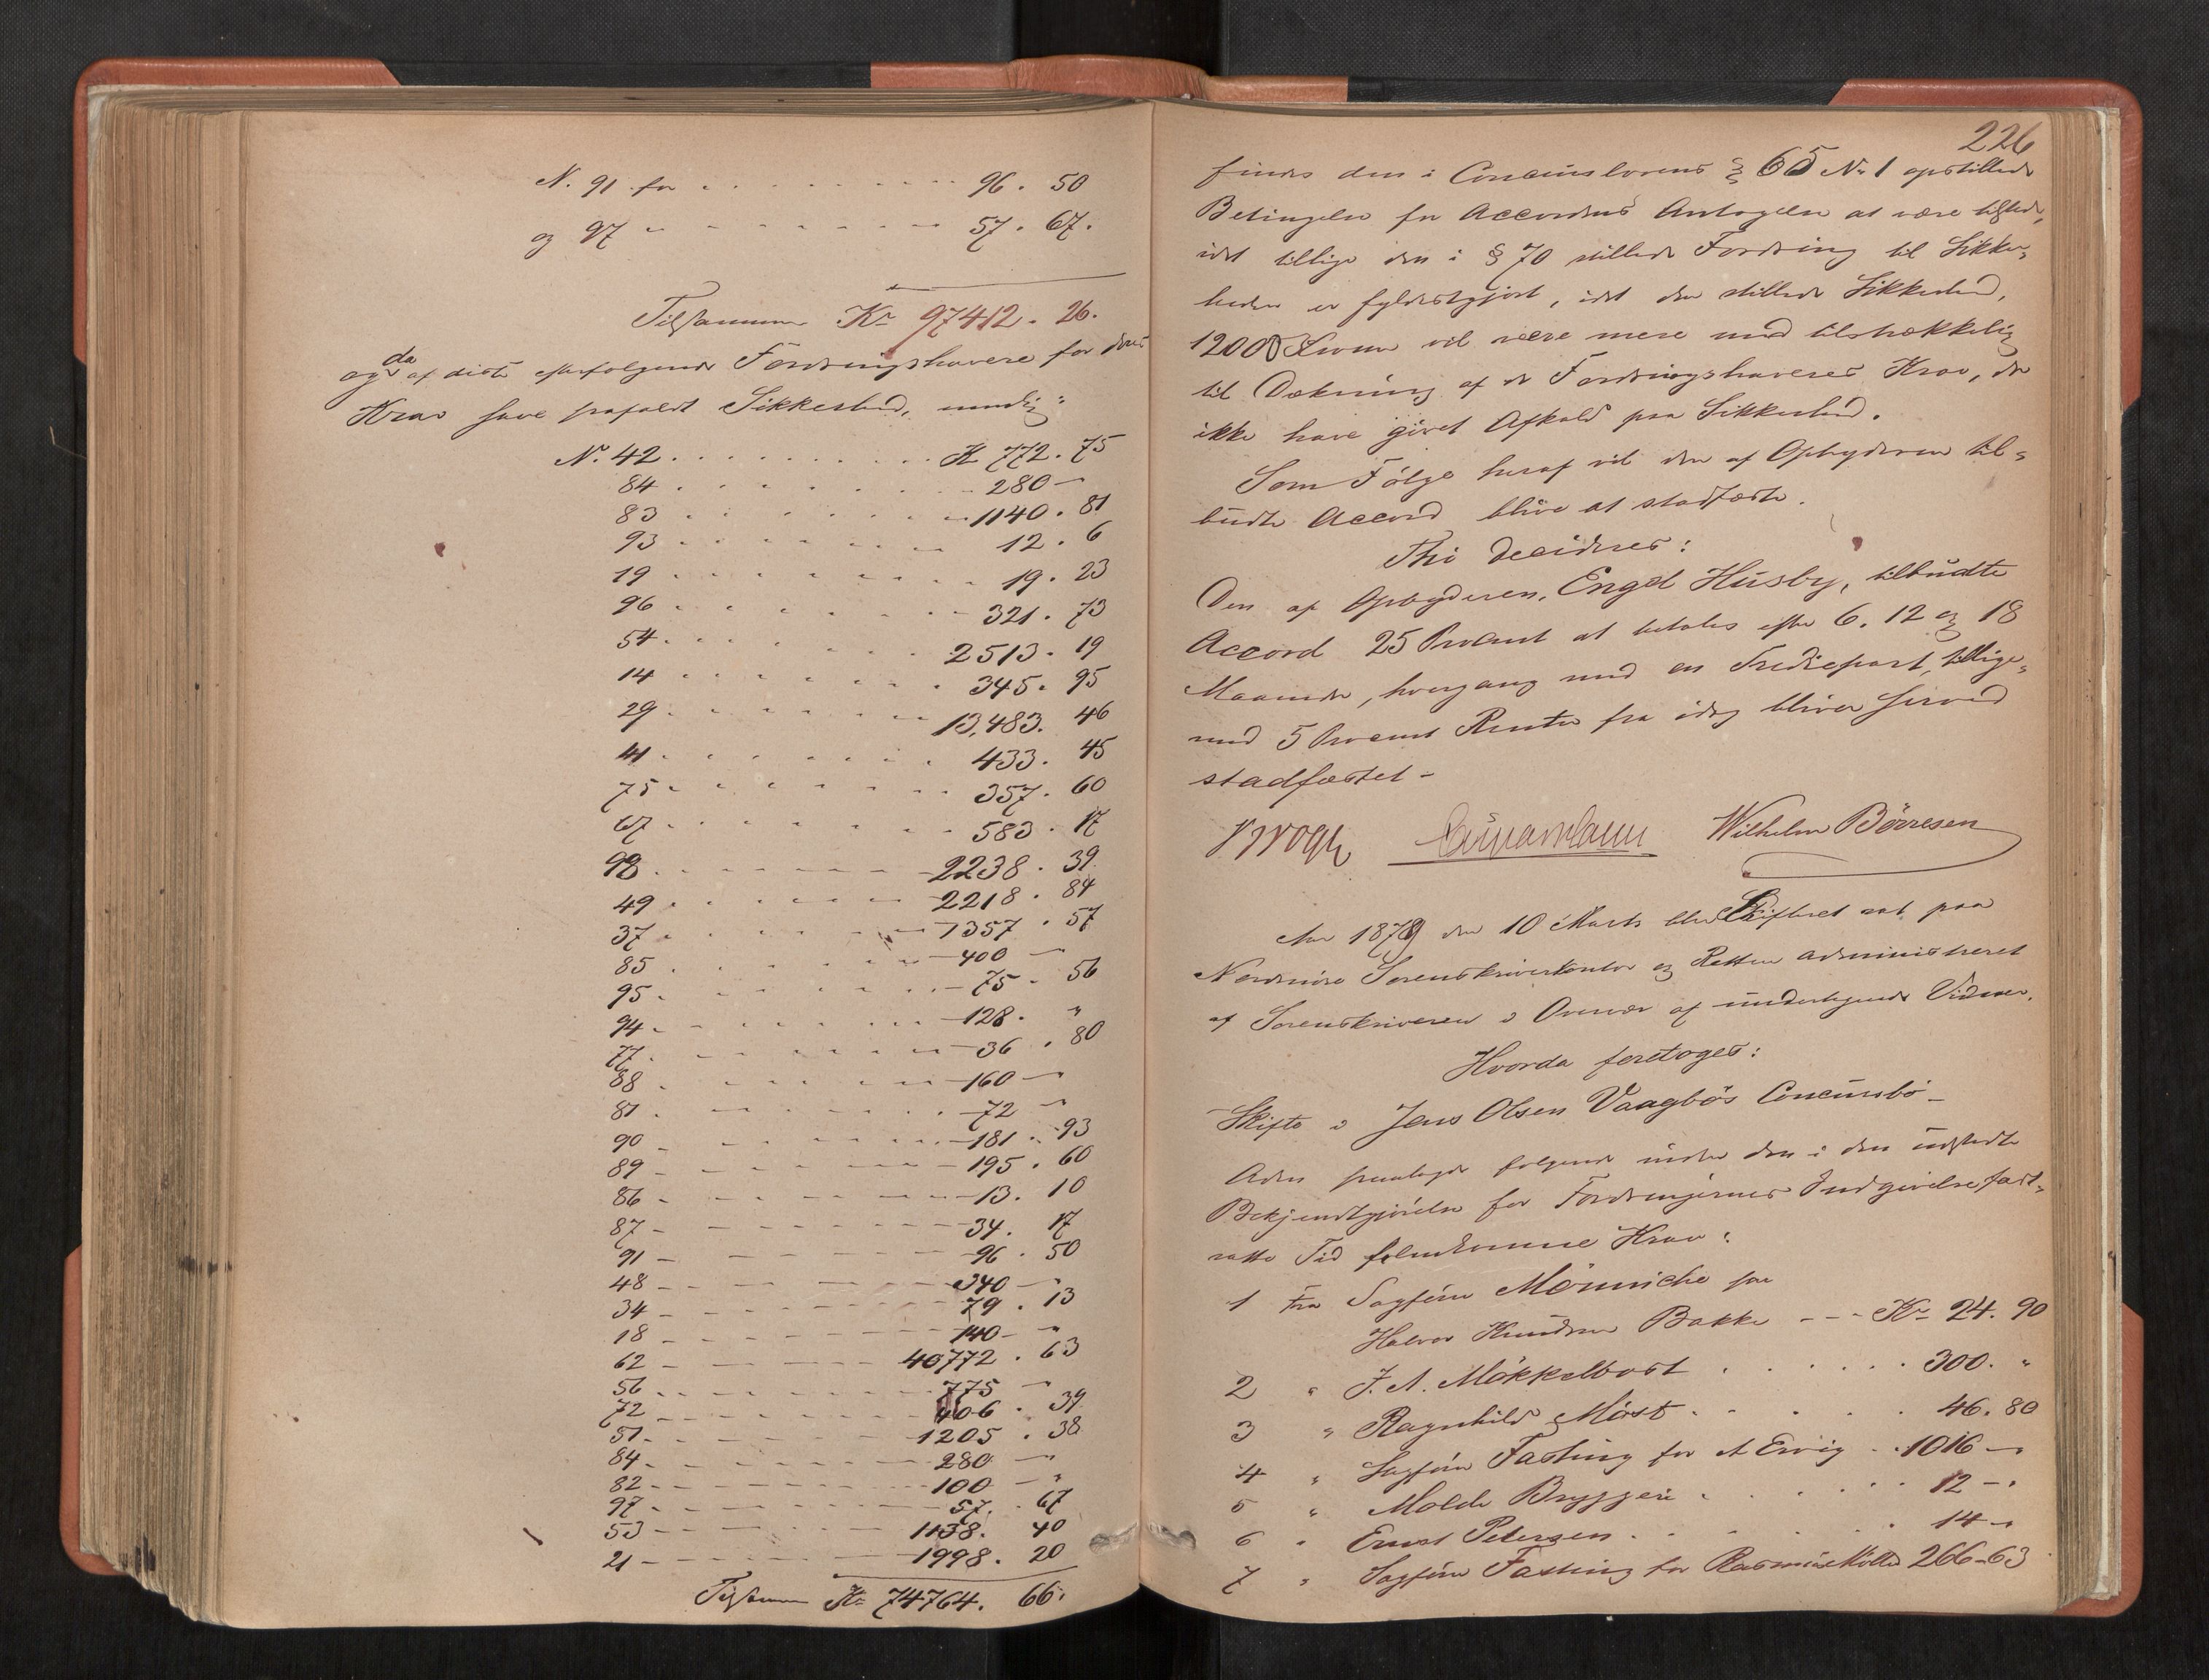 N. 91 for . . . . . . . . . . 96. 50
og 97 " - - - - - - - 57. 67.
Tilsammen Kr 97412. 26.
og da af disse efterfølgende Fordringshavere for deres
Krav have frafaldt Sikkerhed, nemlig:
N. 42 . . . . . . . . . . K 772. 75
84 . . . . . . . . 280 -
83 . . . . . . . . 1140. 81
93 . . . . . . . . 12. 6
19 . . . . . . . . 19. 23
96 . . . . . . . . 321. 73
54 . . . . . . . . 2513. 19
14 . . . . . . . . 345. 95
29 . . . . . . . . 13,483. 46
41 . . . . . . . . 433. 45
75 . . . . . . . . 357. 60
67 . . . . . . . . 583. 17
98 . . . . . . . . 2238. 39
49 . . . . . . . . 2218. 84
37 . . . . . . . . 1357. 57
85 . . . . . . . . 400 -
95 . . . . . . . . 75. 56
94 . . . . . . . . 128. "
77 . . . . . . . . 36. 80
88 . . . . . . . . 160 - "
81 . . . . . . . . 72 - "
90 . . . . . . . . 181. 93
89 - - - - - - 195. 60
86 - - - - - - 13. 10
87 - - - - - - 34. 17
91 - - - - - - 96. 50
48 - - - - - - 340 - "
34 - - - - - - 79. 13
18 - - - - - - 140 - "
62 - - - - - - 40772. 63
56 - - - - - - 775 - "
72 - - - - - - 406. 39
51 - - - - - - 1205. 38
84 - - - - - - 280 - "
82 - - - - - - 100 - "
97 - - - - - - 57. 67
53 - - - - - - 1138. 40
21 - - - - - - 1998. 20
Tilsammen Kr 74764. 66.
226
findes den i Concurslovens § 65 N. 1 opstillede
Betingelse for Accordens Antagelse at være tilstede,
idet tillige den i § 70 stillede Fordring til Sikker-
heden er fyldestgjort, idet den stillede Sikkerhed,
12000 Kroner vil være mere end tilstrækkelig
til Dækning af de Fordringshaveres Krav, der
ikke have givet Afkald paa Sikkerhed.
Som Følge heraf vil den af Opbyderen til-
budte Accord blive at stadfæste.
Thi decideres:
Den af Opbyderen, Engel Husby, tilbudte
Accord 25 Procent at betales efter 6. 12 og 18
Maaneder, hvergang med en Trediepart, tillige-
med 5 Procent Renter fra idag bliver herved
stadfæstet -
Wilhelm Börresen
Aar 1879 den 10 Marts blev Skifteret sat paa
Nordmøre Sorenskriverkontor og Retten administreret
af Sorenskriveren i Overvær af undertegnede Vidner.
Hvorda foretoges:
Skifte i Jens Olsen Vaagbøs Concursbo -
Aden fremlagde følgende inden den i den udstedte
Bekjendtgjørelse for Fordringernes Indgivelse fast-
satte Tid fremkomne Krav:
1 fra Sagfører Mönniche for
Halvor Knudsen Bakke - - - Kr 24. 90
2 " J. A. Mökkelbost . . . . . . 300. "
3 " Ragnhild Möst . . . . . 46. 80
4 " Sagfører Fasting for A Ervig . . 1016 - "
5 " Molde Bryggeri . . . . . . 12 - "
6 " Ernst Petersen . . . . . . 14 - "
7 " Sagfører Fasting for Rasmus Moldes 266-63